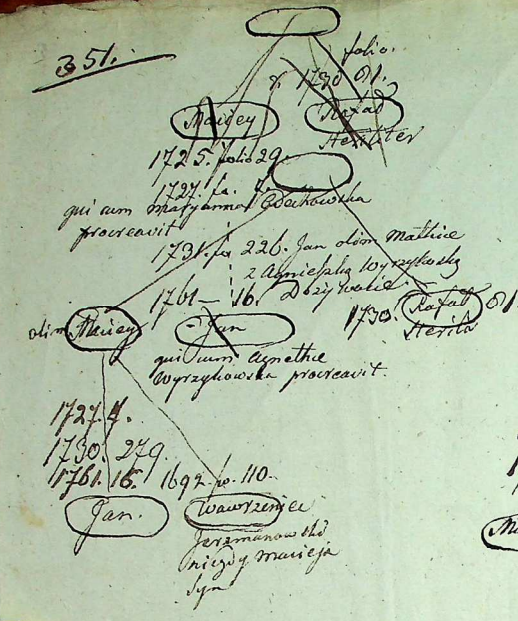 351.
folio.
1730 81.
Maciey
Rafał
Steriliter
1725. folio 29.
1727. fo. 7.
qui cum Maryanna Czechowska
procreavit
1731. fo 226. Jan olim Mathiae
z Agnieszką Wyrzykowską
1761 — 16. Dożywocie.
olim Maciey
Jan
1730. Rafał 81
Sterilis
qui cum Agnethe
Wyrzykowska procreavit.
1727. 7.
1730. 279.
1761. 16. 1692 fo. 110.
Jan.
Wawrzeniec
Jerzmanowski
niegdy Macieja
syn